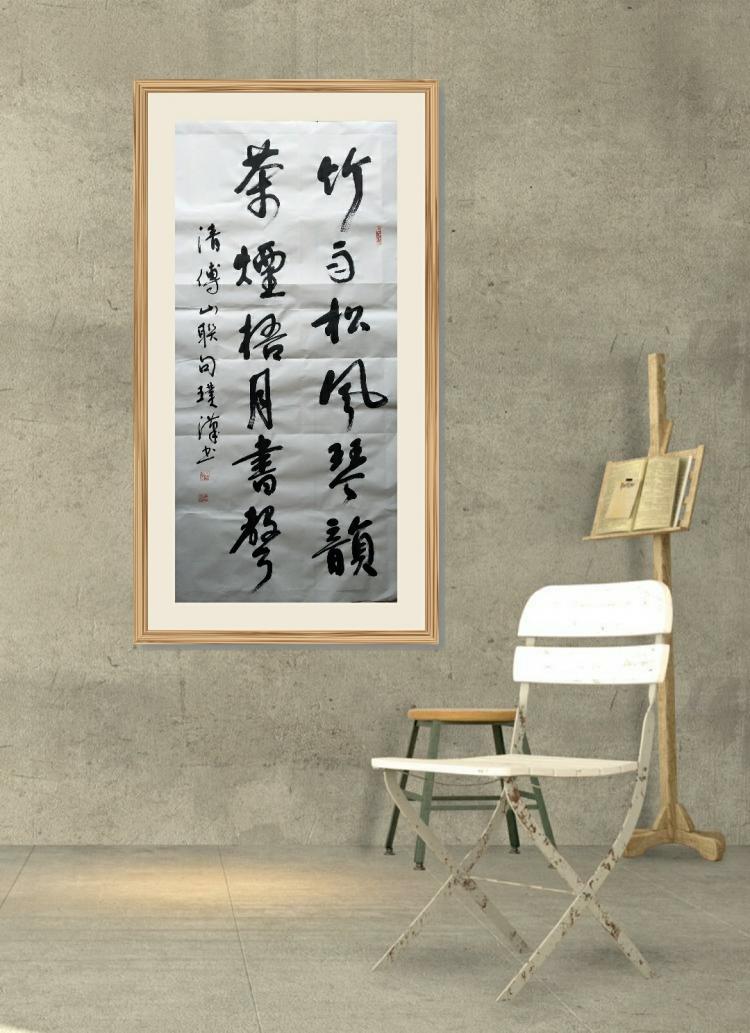 竹雨松風琴韻
茶煙梧月書聲
清傅山联句璞漢书